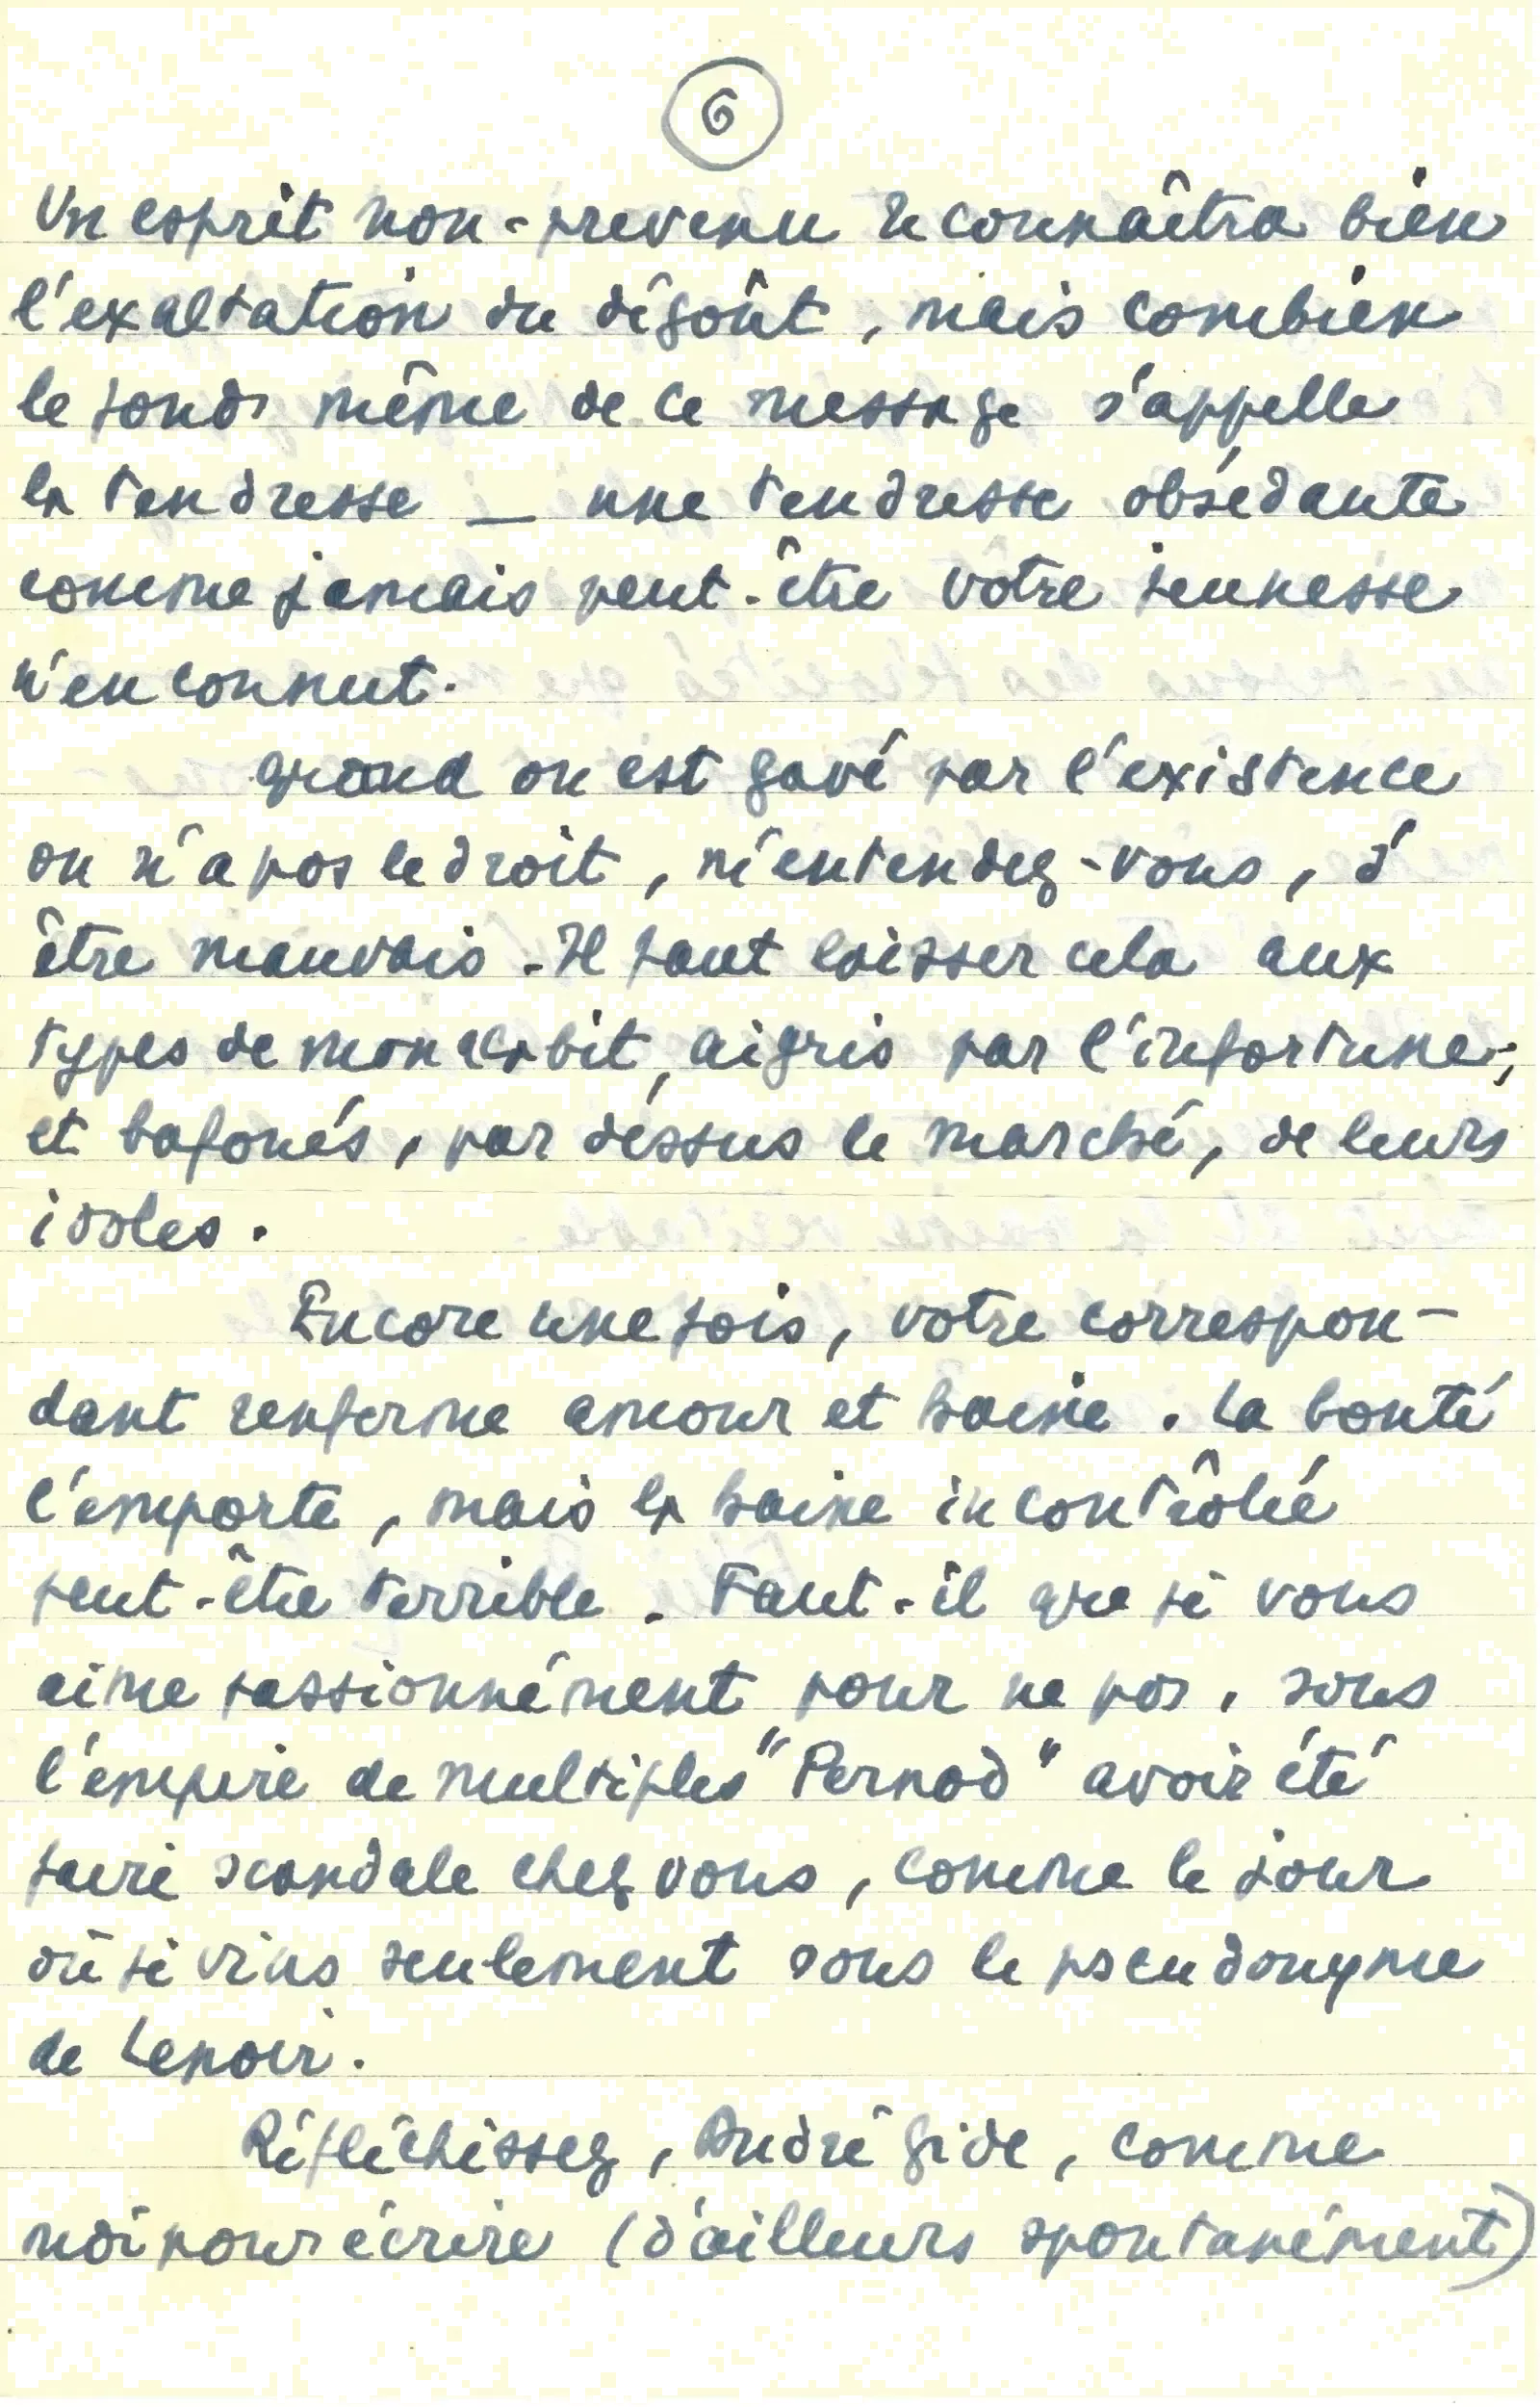 6
Un esprit non-prevenu reconnaîtra bien
l'exaltation du dégoût, mais combien
le fond même de ce message s'appelle
la tendresse — une tendresse obsédante
comme jamais peut-être vôtre jeunesse
n'en connut.
Quand on est gavé par l'existence
on n'a pas le droit, m'entendez-vous, d'
être mauvais. Il faut laisser cela aux
types de mon acabit, aigris par l'infortune;
et bafoués, par dessus le marché, de leurs
idoles.
Encore une fois, votre correspon-
dant renferme amour et haine. La bonté
l'emporte, mais la haine incontrôlée
peut-être terrible. Faut-il que je vous
aime passionnément pour ne pas, sous
l'empire de multiples "Pernod" avoir été
faire scandale chez vous, comme le jour
où je vins seulement sous le pseudonyme
de Lenoir.
Réfléchissez, André Gide, comme
moi pour écrire (d'ailleurs spontanément)